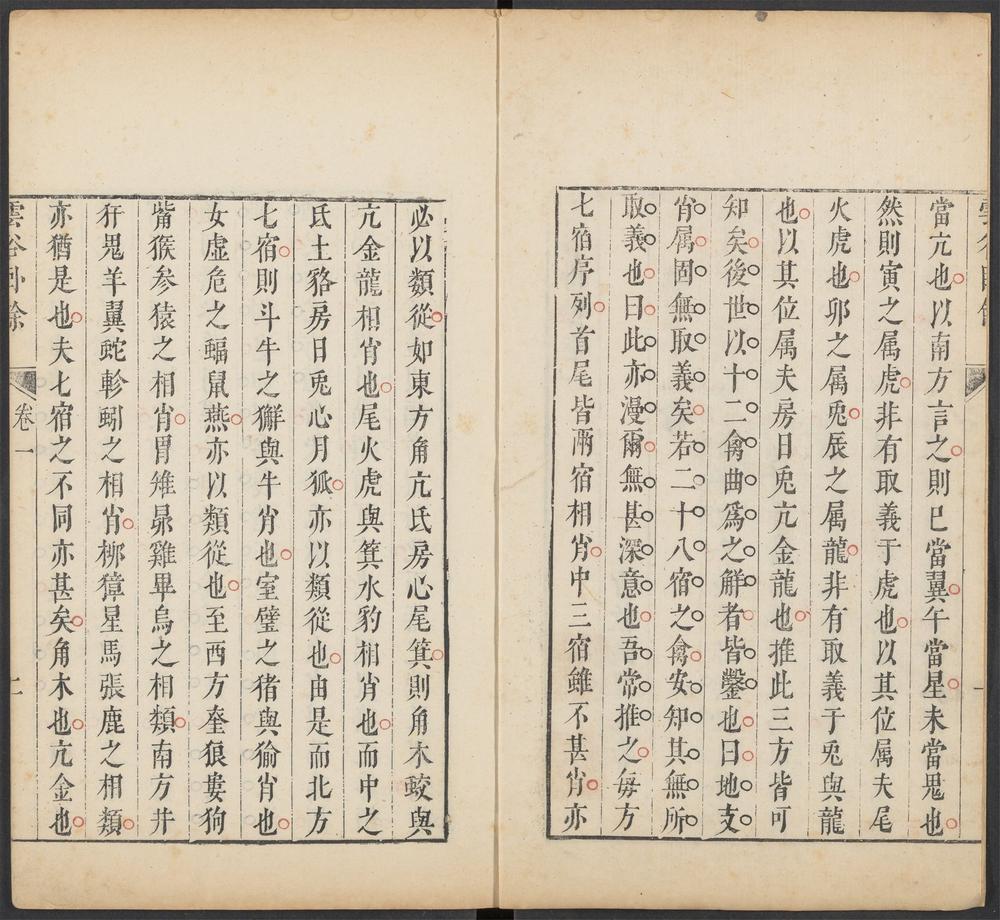 當亢也以南方言之則巳當翼午當星未當鬼也
然則寅之属虎非有取義于虎也以其位属夫尾
火虎也卯之属兎辰之属龍非有取義于兎與龍
也以其位属夫房日兎亢金龍也推此三方皆可
知矣後世以十二禽曲爲之觧者皆鑿也曰地支
肖属固無取義矣若二十八宿之禽安知其無所
取義也曰此亦漫爾無甚深意也吾常推之每方
七宿序列首尾皆兩宿相肖中三宿雖不甚肖亦
必以類從如東方角亢氐房心尾箕則角木蛟與
亢金龍相肖也尾火虎與箕水豹相肖也而中之
氐土貉房日兎心月狐亦以類從也由是而北方
七宿則斗牛之獬與牛肖也室壁之猪與㺄肖也
女虛危之蝠鼠燕亦以類從也至西方奎狼婁狗
觜猴参猿之相肖胃雉昴雞畢烏之相類南方井
犴鬼羊翼蛇軫蚓之相肖柳獐星馬張鹿之相類
亦猶是也夫七宿之不同亦甚矣角木也亢金也
雲谷卧餘
卷一
二